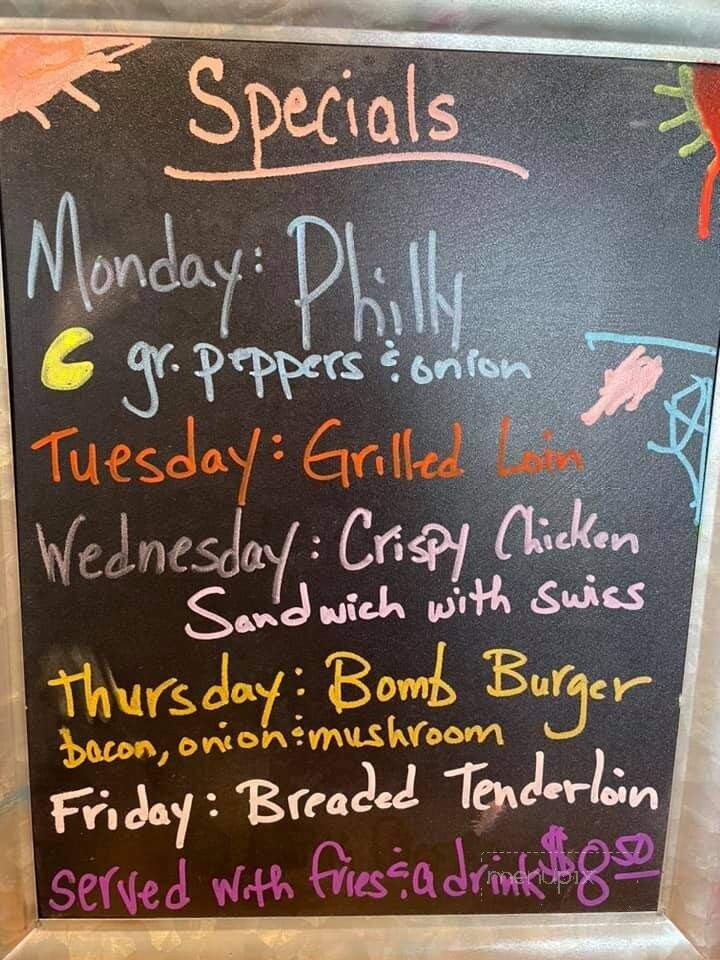 Specials
Monday: Philly
C gr. peppers & onion
Tuesday: Grilled Loin
Wednesday: Crispy Chicken
Sandwich with swiss
Thursday: Bomb Burger
bacon, onion & mushroom
Friday: Breaded Tenderloin
served with fries & a drink $8.50
menupix